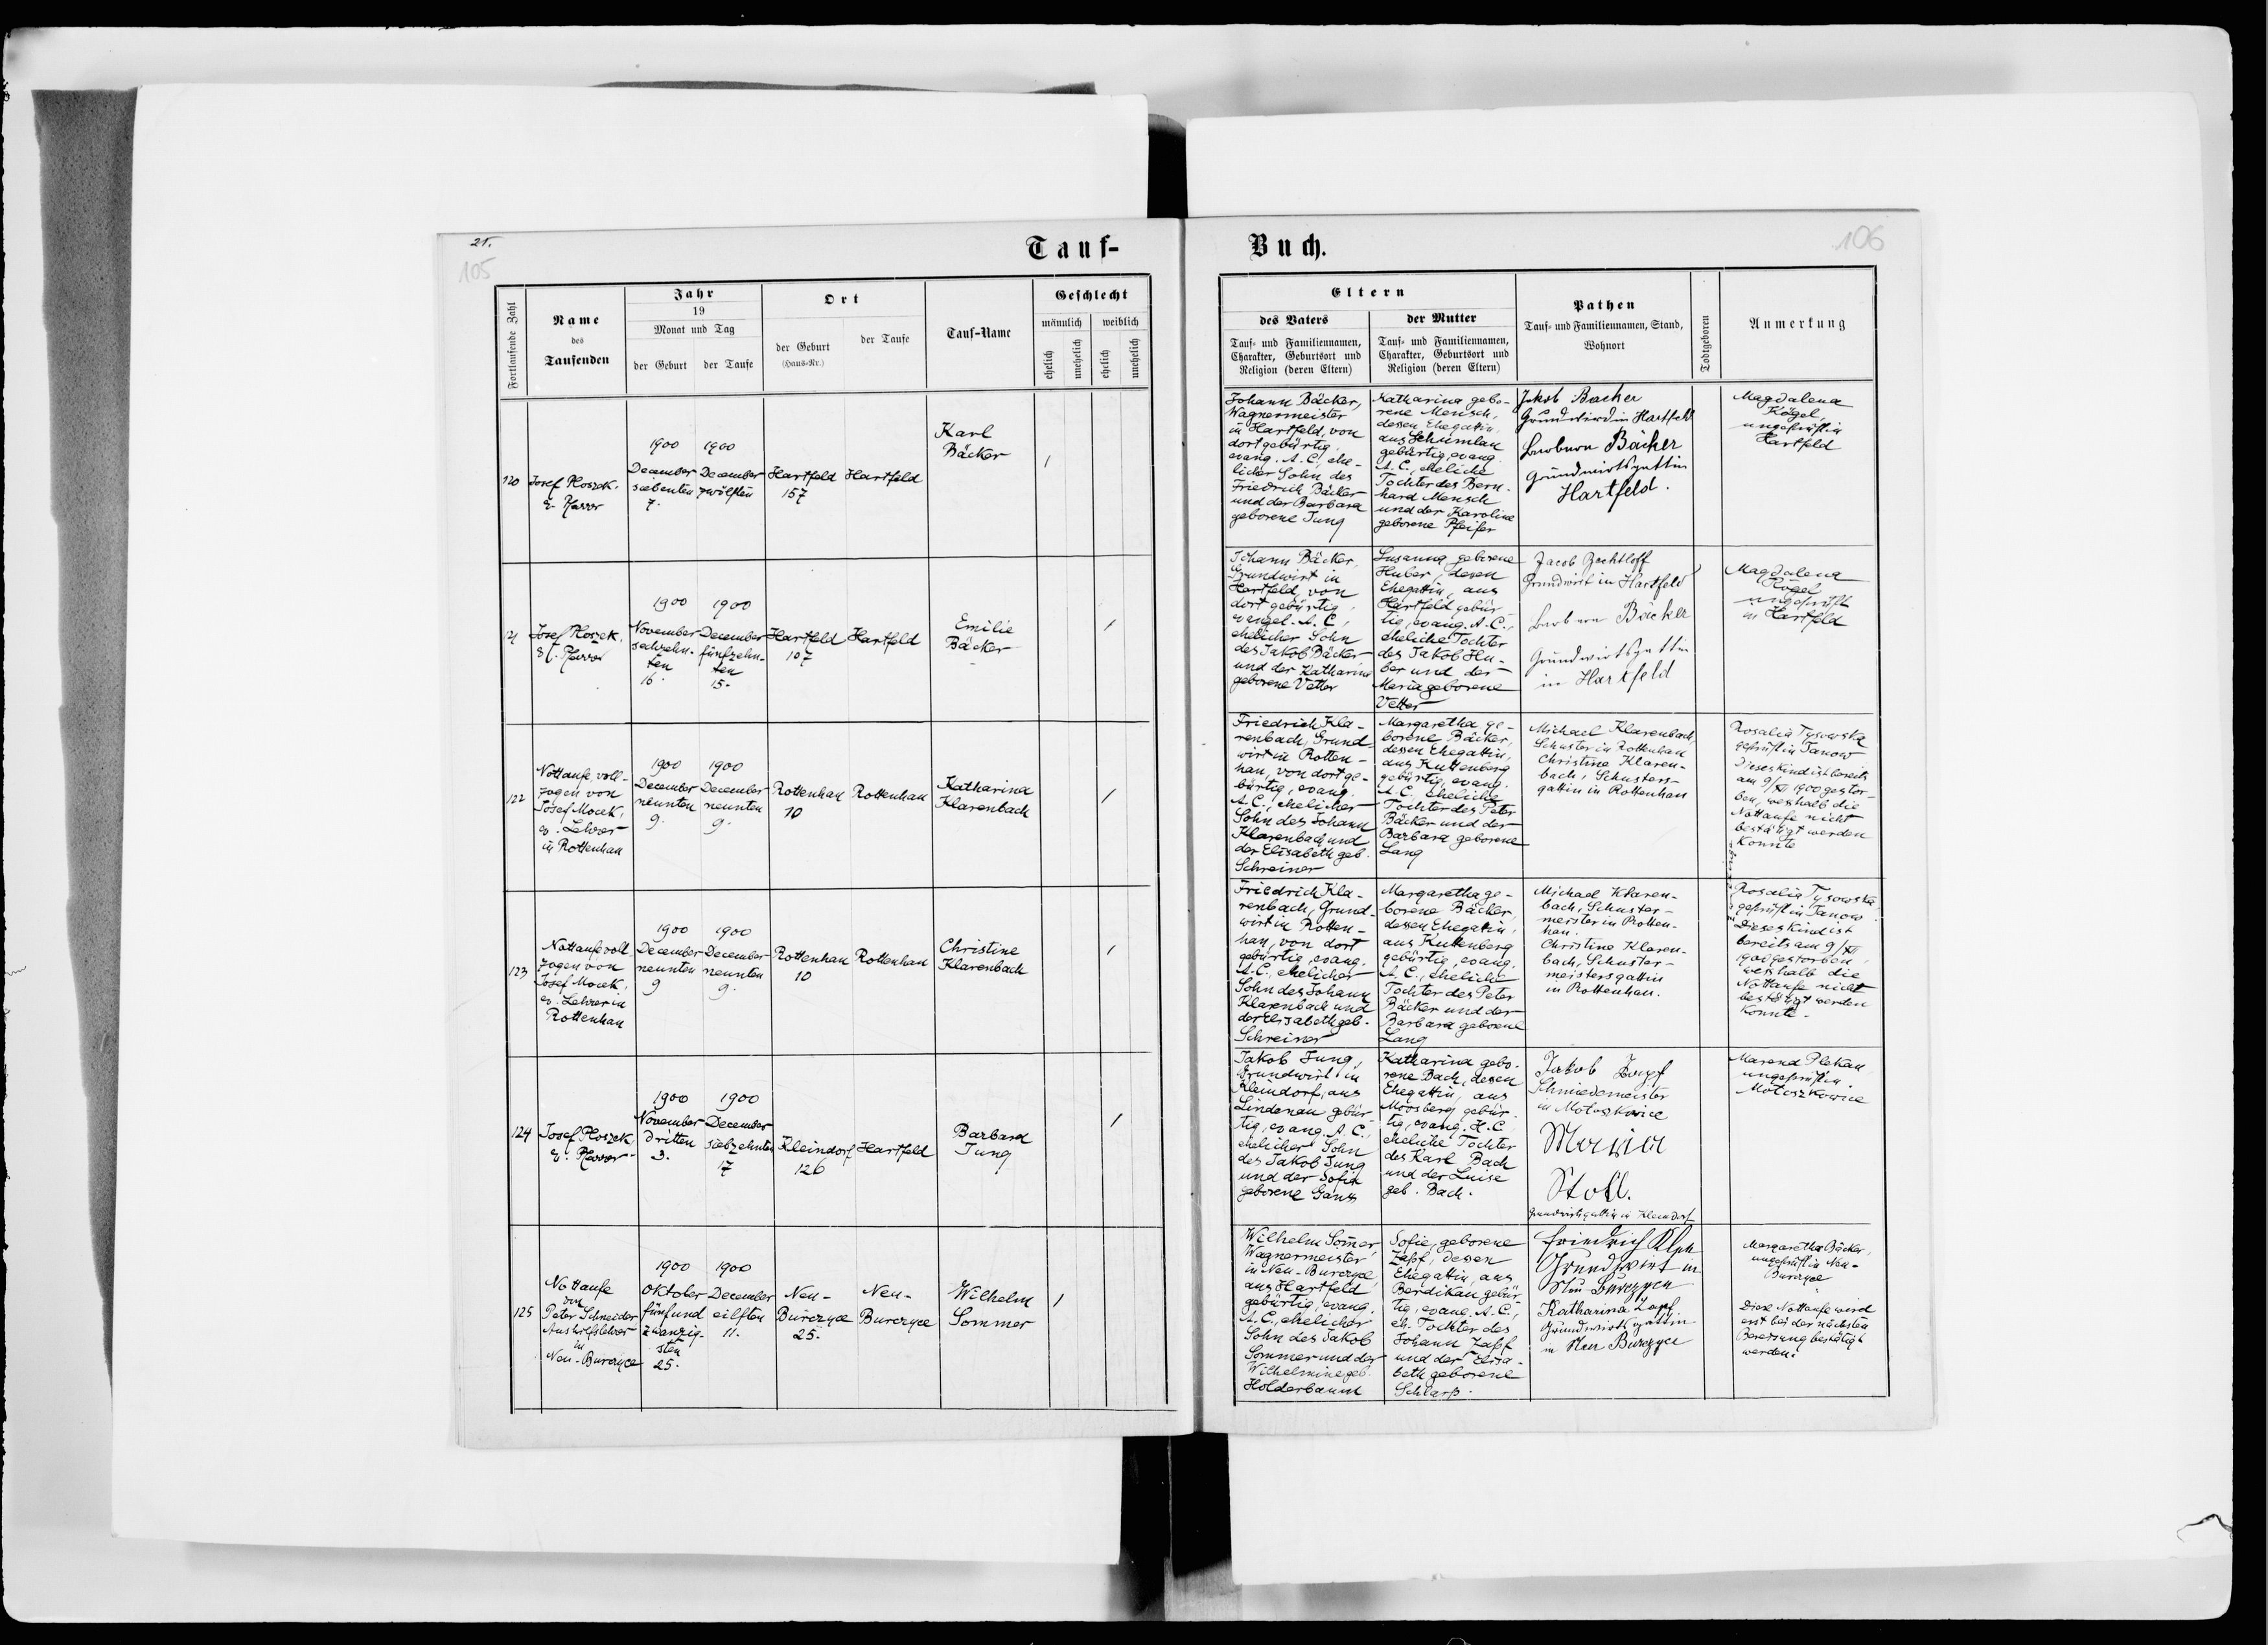 21.
105
Tauf-
Fortlaufende Zahl
Name
des
Taufenden
Jahr
19
Monat und Tag
der Geburt
der Taufe
Ort
der Geburt
(Haus-Nr.)
der Taufe
Tauf-Name
Geschlecht
männlich
weiblich
ehelich
unehelich
ehelich
unehelich
120
Josef Ploszek,
e. Pfarrer
1900
December
siebenten
7.
1900
December
zwölften
Hartfeld
157
Hartfeld
Karl
Bäcker
1
121
Josef Ploszek,
ev. Pfarrer
1900
November
sechzehn-
ten
16.
1900
December
fünfzehn-
ten
15.
Hartfeld
107
Hartfeld
Emilie
Bäcker
1
122
Nottaufe, voll-
zogen von
Josef Mocek,
ev. Lehrer
in Rottenhan
1900
December
neunten
9.
1900
December
neunten
9.
Rottenhan
10
Rottenhan
Katharina
Klarenbach
1
123
Nottaufe voll
zogen von
Josef Mocek,
ev. Lehrer in
Rottenhan
1900
December
neunten
9
1900
December
neunten
9.
Rottenhan
10
Rottenhan
Christine
Klarenbach
1
124
Josef Ploszek,
e. Pfarrer
1900
November
dritten
3.
1900
December
siebzehnten
17
Kleindorf
126
Hartfeld
Barbara
Jung
1
125
Nottaufe
von
Peter Schneider
Aushilfslehrer
in
Neu-Burczyce
1900
Oktober
fünfund
zwanzig-
sten
25.
1900
December
eilften
11.
Neu-
Burczyce
25.
Neu-
Burczyce
Wilhelm
Sommer
1
Buch.
106
Eltern
des Vaters
Tauf- und Familiennamen,
Charakter, Geburtsort und
Religion (deren Eltern)
der Mutter
Tauf- und Familiennamen,
Charakter, Geburtsort und
Religion (deren Eltern)
Pathen
Tauf- und Familiennamen, Stand,
Wohnort
Todtgeboren
Anmerkung
Johann Bäcker,
Wagnermeister
in Hartfeld, von
dort gebürtig,
evang. A.C., ehe-
licher Sohn des
Friedrich Bäcker
und der Barbara
geborene Jung
Katharina gebo-
rene Mensch,
dessen Ehegattin,
aus Schumlau
gebürtig, evang.
A.C., eheliche
Tochter des Bern-
hard Mensch
und der Karoline
geborene Pfeifer
Jakob Bäcker
Grundwird in Hartfeld
Barbara Bäcker
Grundwirtsgattin
Hartfeld.
Magdalena
Kögel,
ungeprüft in
Hartfeld
Johann Bäcker,
Grundwirt in
Hartfeld, von
dort gebürtig,
evangel. A.C.,
ehelicher Sohn
des Jakob Bäcker
und der Katharina
geborene Vetter
Susanna geborene
Huber, dessen
Ehegattin, aus
Hartfeld gebür-
tig, evang. A.C.,
eheliche Tochter
des Jakob Hu-
ber und der
Maria geborene
Vetter
Jacob Bechtloff
Grundwirt in Hartfeld
Barbara Bäcker
Grundwirtsgattin
in Hartfeld
Magdalena
Kögel
ungeprüft
in Hartfeld
Friedrich Kla-
renbach, Grund-
wirt in Rotten-
han, von dort ge-
bürtig, evang.
A.C., ehelicher
Sohn des Johann
Klarenbach und
der Elisabeth geb.
Schreiner
Margaretha ge-
borene Bäcker,
dessen Ehegattin,
aus Kuttenberg
gebürtig, evang.
A.C. eheliche
Tochter des Peter
Bäcker und der
Barbara geborene
Lang
Michael Klarenbach,
Schuster in Rottenhan
Christine Klaren-
bach, Schusters-
gattin in Rottenhan
Rosalia Tysowska
geprüft in Janow
Dieses Kind ist bereits
am 9/XII 1900 gestor-
ben, weshalb die
Nottaufe nicht
bestätigt werden
konnte
Friedrich Kla-
renbach, Grund-
wirt in Rotten-
han, von dort
gebürtig, evang.
A.C., ehelicher
Sohn des Johann
Klarenbach und
der Elisabeth geb.
Schreiner
Margaretha ge-
borene Bäcker,
dessen Ehegattin,
aus Kuttenberg
gebürtig, evang.
A.C., eheliche
Tochter des Peter
Bäcker und der
Barbara geborene
Lang
Michael Klaren-
bach, Schuster-
meister in Rotten-
han.
Christine Klaren-
bach, Schuster-
meistersgattin
in Rottenhan.
Rosalia Tysowska
geprüft in Janow
Dieses Kind ist
bereits am 9/XII
1900 gestorben,
weshalb die
Nottaufe nicht
bestätigt werden
konnte.
Jakob Jung,
Grundwirt in
Kleindorf, aus
Lindenau gebür-
tig, evang. A.C.,
ehelicher Sohn
des Jakob Jung
und der Sofia
geborene Ganz
Katharina gebo-
rene Bach, dessen
Ehegattin, aus
Moosberg gebür-
tig, evang. H.C.
eheliche Tochter
des Karl Bach
und der Luise
geb. Bach.
Jakob Zapf
Schmiedemeister
in Motoszkowice
Maria
Stoll.
Grundwirthgattin in Kleindorf
Plekan
ungeprüft in
Motoszkowice
Wilhelm Sommer,
Wagnermeister
in Neu-Burczyce,
aus Hartfeld
gebürtig, evang.
A.C., ehelicher
Sohn des Jakob
Sommer und der
Wilhelmine geb.
Holderbaum
Sofie, geborene
Zapf, dessen
Ehegattin, aus
Berdikau gebür-
tig, evang. A.C.,
eh. Tochter des
Johann Zapf
und der Elisa-
beth geborene
Schlarp.
Friedrich
Grundwirt in
Neu Burczyce
Katharina Zapf
Grundwirtsgattin
in Neu Burczyce
Margaretha Bäcker,
ungeprüft in Neu-
Burczyce
Diese Nottaufe wird
erst bei der nächsten
Bereisung bestätigt
werden.